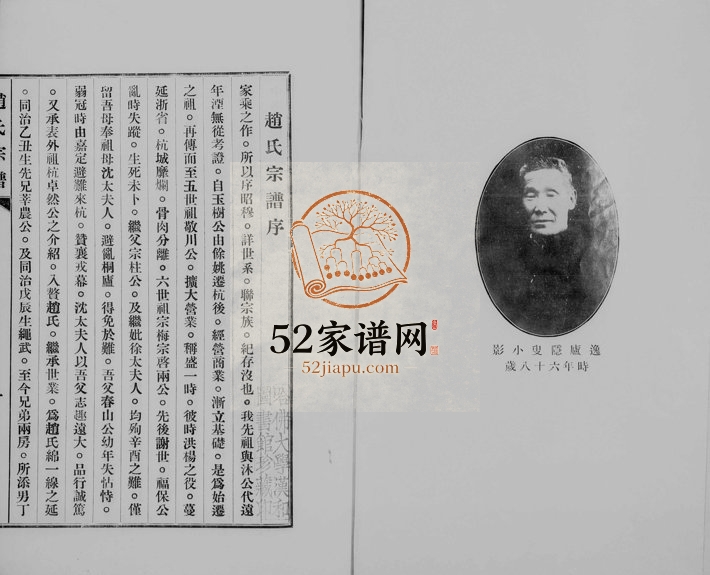 逸廬隱叟小影
時年六十八歲
趙氏宗譜序
家乘之作。所以序昭穆。詳世系。聯宗族。紀存沒也。我先祖與沐公代遠
年湮無從考證。自玉樹公由餘姚遷杭後。經營商業。漸立基礎。是爲始遷
之祖。再傳而至五世祖敬川公。擴大營業。稱盛一時。彼時洪楊之役。蔓
延浙省。杭城靡爛。骨肉分離。六世祖宗梅宗啓兩公。先後謝世。福保公
亂時失蹤。生死未卜。繼父宗柱公。及繼妣徐太夫人。均殉辛酉之難。僅
留吾母奉祖母沈太夫人。避亂桐廬。得免於難。吾父春山公幼年失怙恃。
弱冠時由嘉定避難來杭。贊襄戎幕。沈太夫人以吾父志趣遠大。品行誠篤
。又承表外祖杭卓然公之介紹。入贅趙氏。繼承世業。爲趙氏綿一線之延
。同治乙丑生先兄莘農公。及同治戊辰生繩武。至今兄弟兩房。所添男丁
趙氏宗譜
哈佛大學漢和
圖書館珍藏印
52家谱网
52jiapu.com